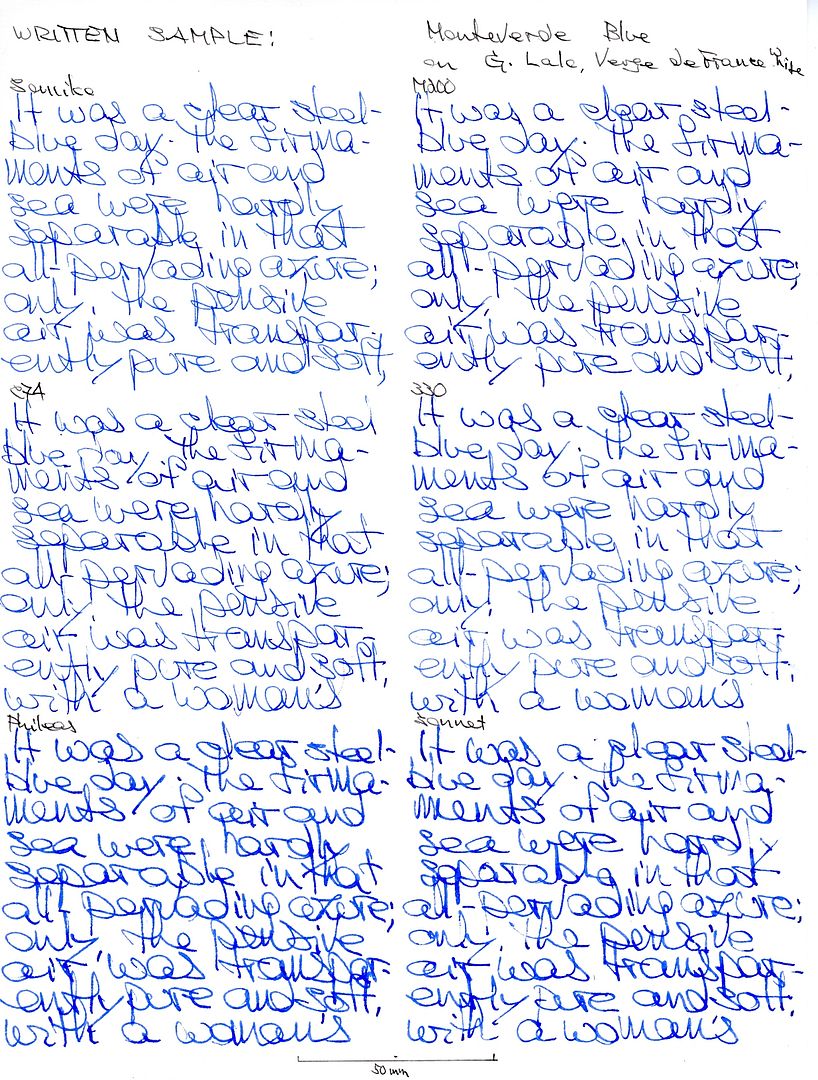 WRITTEN SAMPLE:
Monteverde Blue
on G. Lalo, Verge de France White
Somiko
It was a clear steel-
blue day. The firma-
ments of air and
sea were hardly
separable in that
all-pervading azure;
only, the pensive
air was transpar-
ently pure and soft,
M200
It was a clear steel-
blue day. The firma-
ments of air and
sea were hardly
separable in that
all-pervading azure;
only, the pensive
air was transpar-
ently pure and soft,
c74
It was a clear steel
blue day. The firma-
ments of air and
sea were hardly
separable in that
all-pervading azure;
only, the pensive
air was transpar-
ently pure and soft,
with a woman's
330
It was a clear steel-
blue day. The firma-
ments of air and
sea were hardly
separable in that
all-pervading azure;
only, the pensive
air was transpar-
ently pure and soft,
with a woman's
Phileas
It was a clear steel-
blue day. The firma-
ments of air and
sea were hardly
separable in that
all-pervading azure;
only, the pensive
air was transpar-
ently pure and soft,
with a woman's
Sonnet
It was a clear steel-
blue day. The firma-
ments of air and
sea were hardly
separable in that
all-pervading azure;
only, the pensive
air was transpar-
ently pure and soft,
with a woman's
50 mm